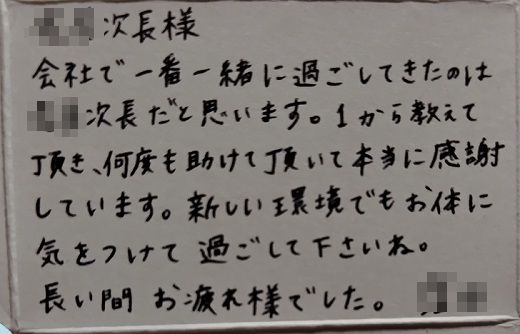 次長様
会社で一番一緒に過ごしてきたのは
次長だと思います。1から教えて
頂き、何度も助けて頂いて本当に感謝
しています。新しい環境でもお体に
気をつけて過ごして下さいね。
長い間 お疲れ様でした。